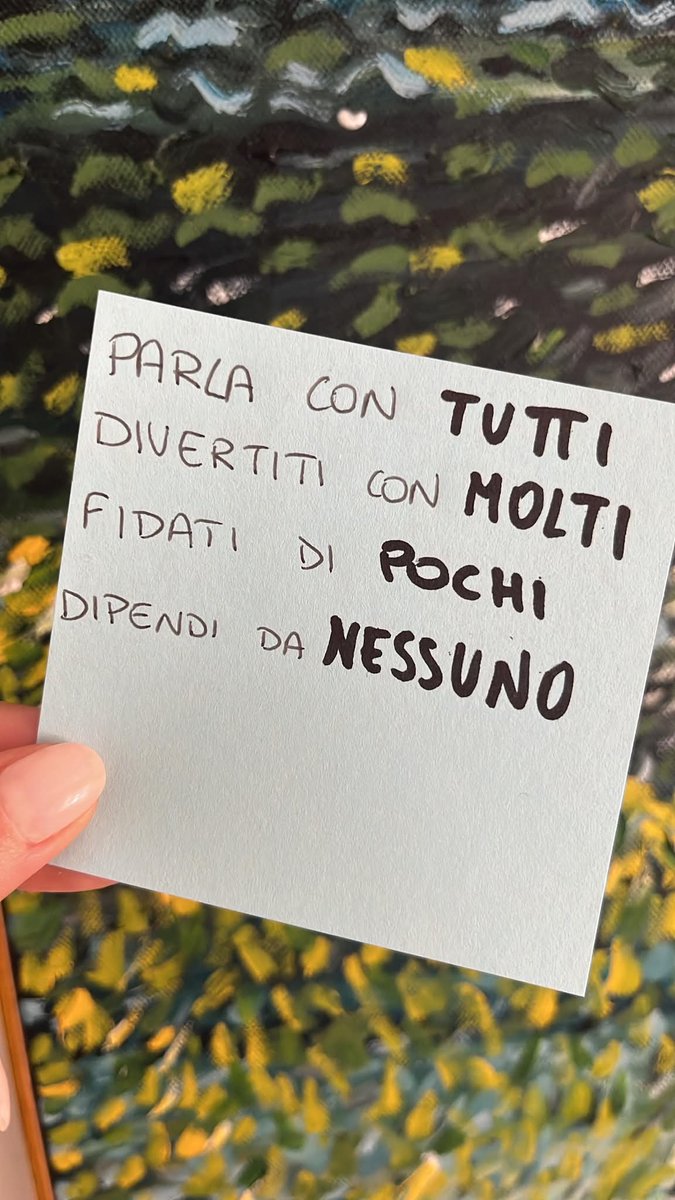 PARLA CON TUTTI
DIVERTITI CON MOLTI
FIDATI DI POCHI
DIPENDI DA NESSUNO